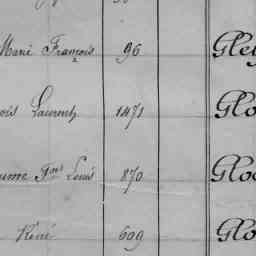 Marie François 96 Gle
Laurent 1471 Glo
aume Fois Louis 870 Glo
René 609 Glo